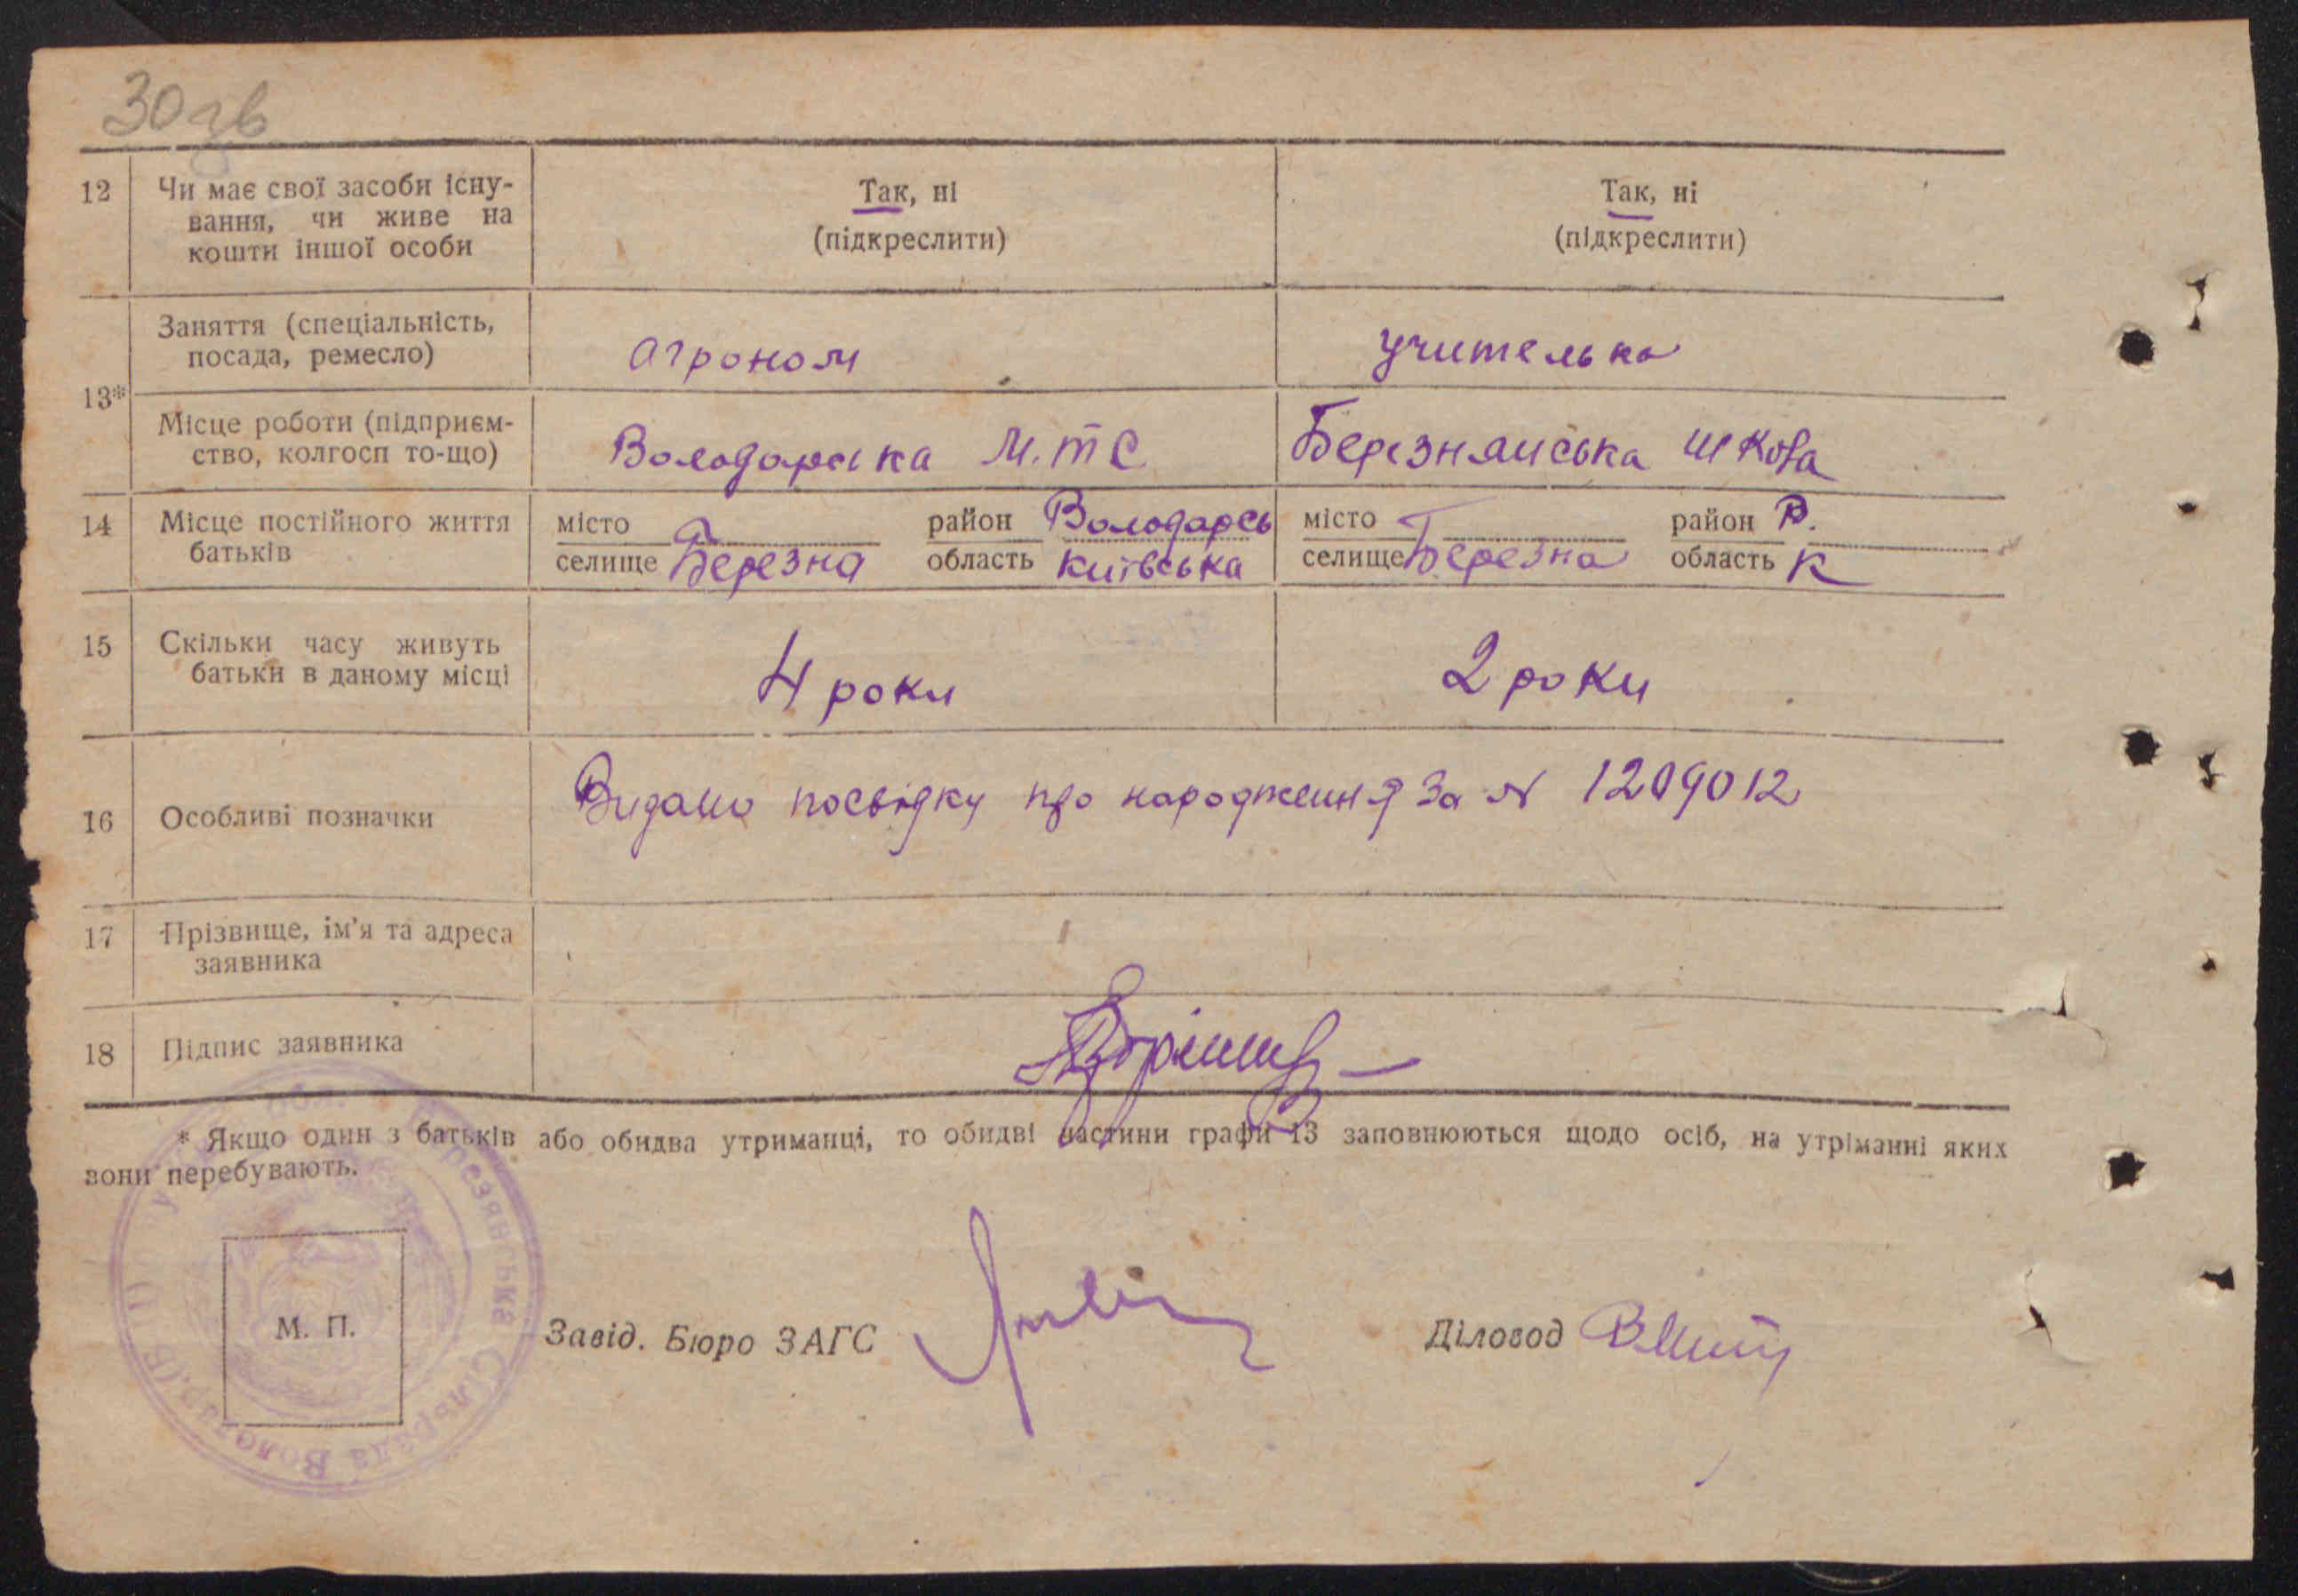 30зв
12 Чи має свої засоби існу-
вання, чи живе на
кошти іншої особи
Так, ні
(підкреслити)
Так, ні
(підкреслити)
13*
Заняття (спеціальність,
посада, ремесло)
агроном
учителька
Місце роботи (підприєм-
ство, колгосп то-що)
Володарська М.Т.С.
Березнянська школа
14 Місце постійного життя
батьків
місто район Володарсь
селище Березна область київська
місто район В.
селище Березна область К
15 Скільки часу живуть
батьки в даному місці
4 роки
2 роки
16 Особливі позначки
Видано посвідку про народження за № 1209012
17 Прізвище, ім'я та адреса
заявника
18 Підпис заявника
* Якщо один з батьків або обидва утриманці, то обидві частини графи 13 заповнюються щодо осіб, на утріманні яких
вони перебувають.
М. П.
Завід. Бюро ЗАГС
Діловод
Сільрада